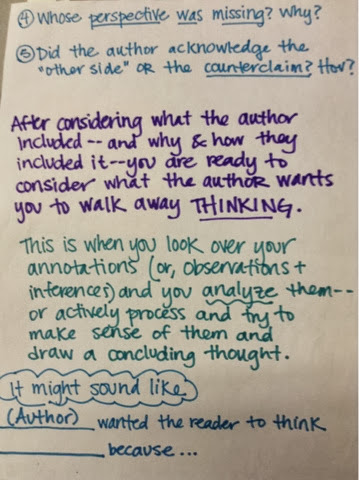 ④ Whose perspective was missing? Why?
⑤ Did the author acknowledge the
"other side" OR the counterclaim? How?
After considering what the author
included -- and why & how they
included it -- you are ready to
consider what the author wants
you to walk away THINKING.
This is when you look over your
annotations (or, observations +
inferences) and you analyze them --
or actively process and try to
make sense of them and
draw a concluding thought.
It might sound like
(Author) wanted the reader to think
__________ because...